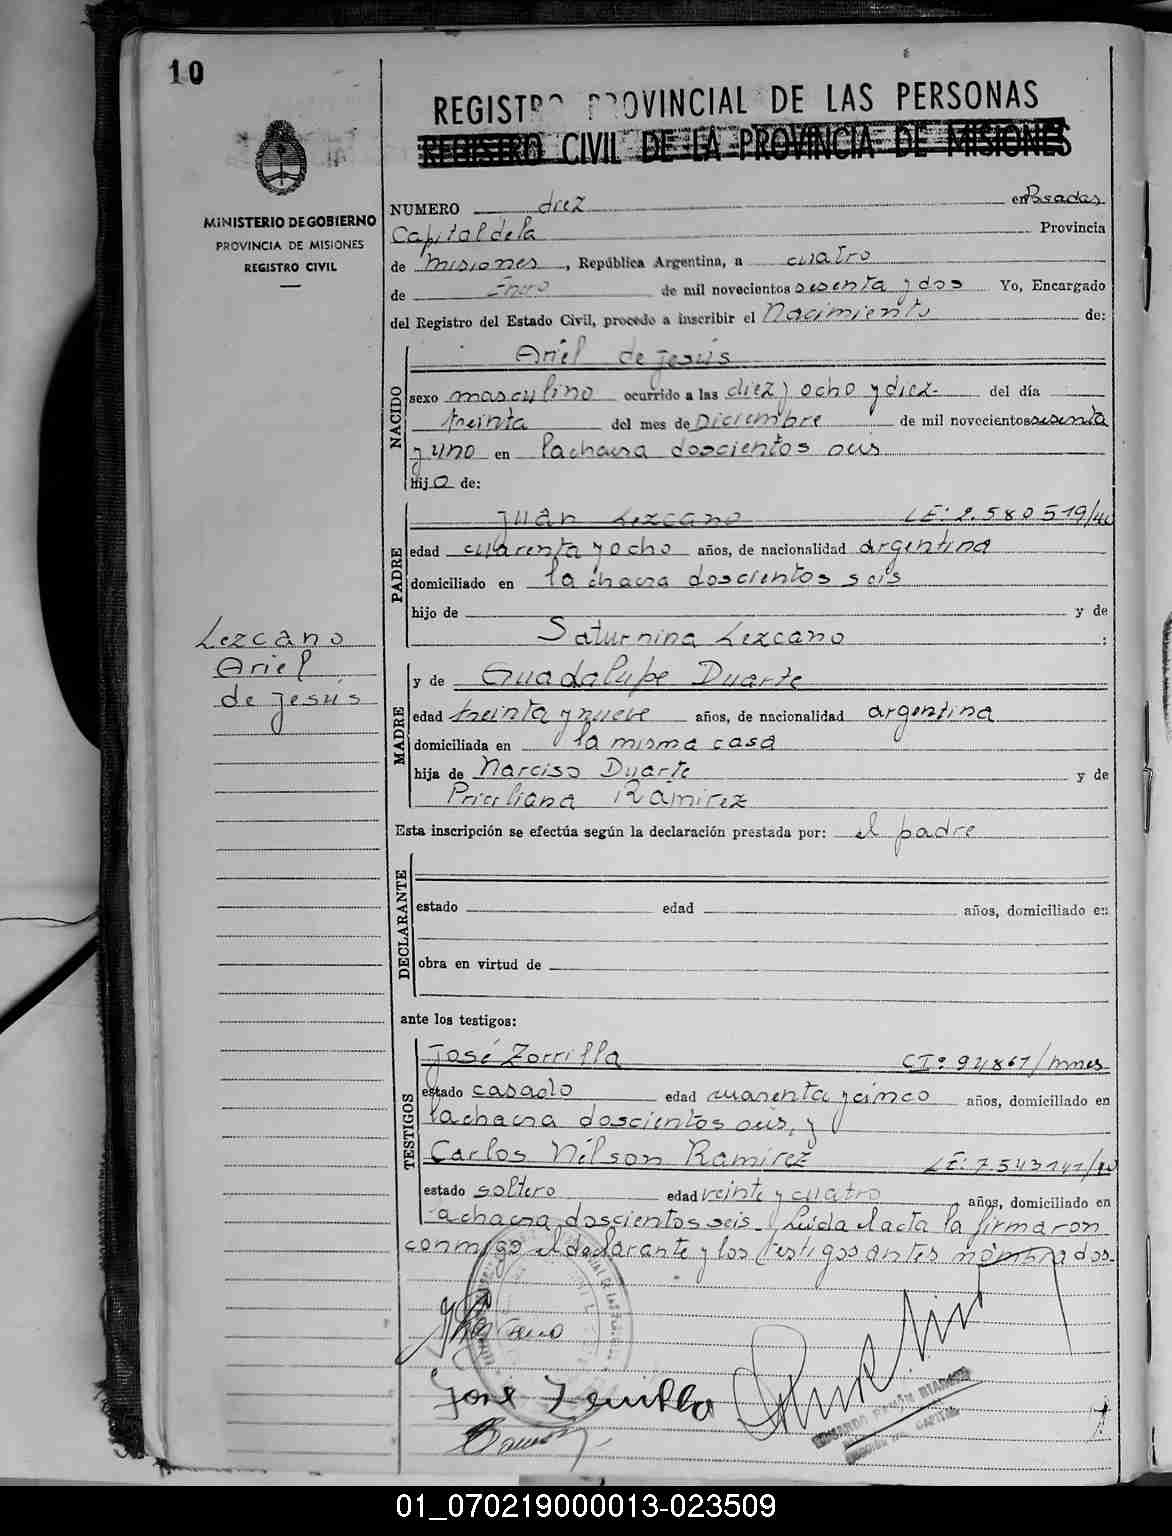 10
REGISTRO PROVINCIAL DE LAS PERSONAS
REGISTRO CIVIL DE LA PROVINCIA DE MISIONES
MINISTERIO DE GOBIERNO
PROVINCIA DE MISIONES
REGISTRO CIVIL
NUMERO diez en Posadas
Capital de la Provincia
de Misiones, República Argentina, a cuatro
de Enero de mil novecientos sesenta y dos Yo, Encargado
del Registro del Estado Civil, procedo a inscribir el Nacimiento de:
NACIDO
Ariel de Jesús
sexo masculino ocurrido a las diez y ocho y diez del día
treinta del mes de Diciembre de mil novecientos sesenta
y uno en la chacra doscientos seis
hijo de:
PADRE
Juan Lezcano LE: 2.580519/40
edad cuarenta y ocho años, de nacionalidad argentina
domiciliado en la chacra doscientos seis
hijo de y de
Saturnina Lezcano :
Lezcano
Ariel
de Jesús
MADRE
y de Guadalupe Duarte
edad treinta y nueve años, de nacionalidad argentina
domiciliada en la misma casa
hija de Narciso Duarte y de
Ramirez
Esta inscripción se efectúa según la declaración prestada por: el padre
DECLARANTE
estado edad años, domiciliado en
obra en virtud de
ante los testigos:
TESTIGOS
José Zorrilla CI: 94867/mnes
estado casado edad cuarenta y cinco años, domiciliado en
la chacra doscientos seis, y
Carlos Nélson Ramirez LE: 7.543141/40
estado soltero edad veinte y cuatro años, domiciliado en
la chacra doscientos seis. Leida el acta la firmaron
conmigo el declarante y los testigos antes nombrados.
José Zorrilla
01_070219000013-023509